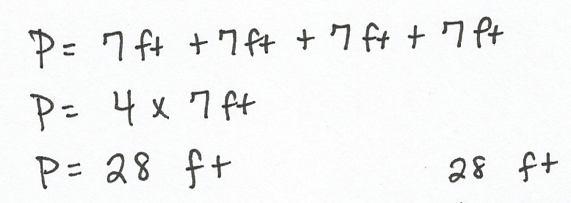 P = 7 ft + 7 ft + 7 ft + 7 ft
P = 4 x 7 ft
P = 28 ft 28 ft